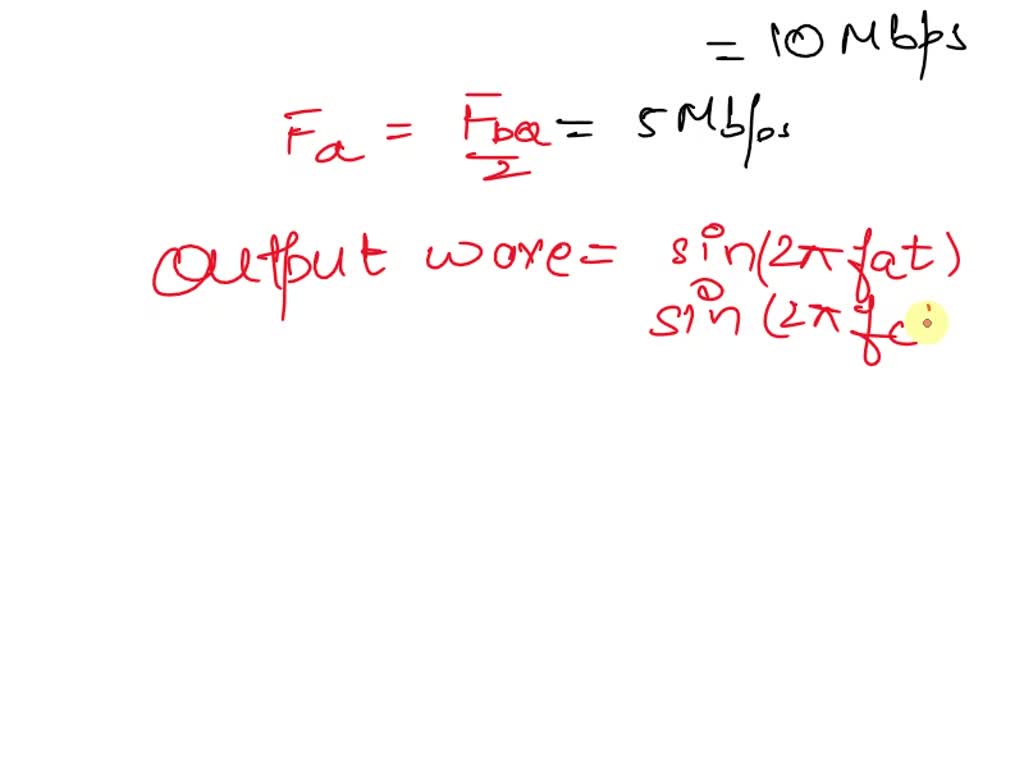 = 10 Mbps
Fa = Fba/2 = 5 Mbps
Output wave = sin(2πfat)
sin(2πfc